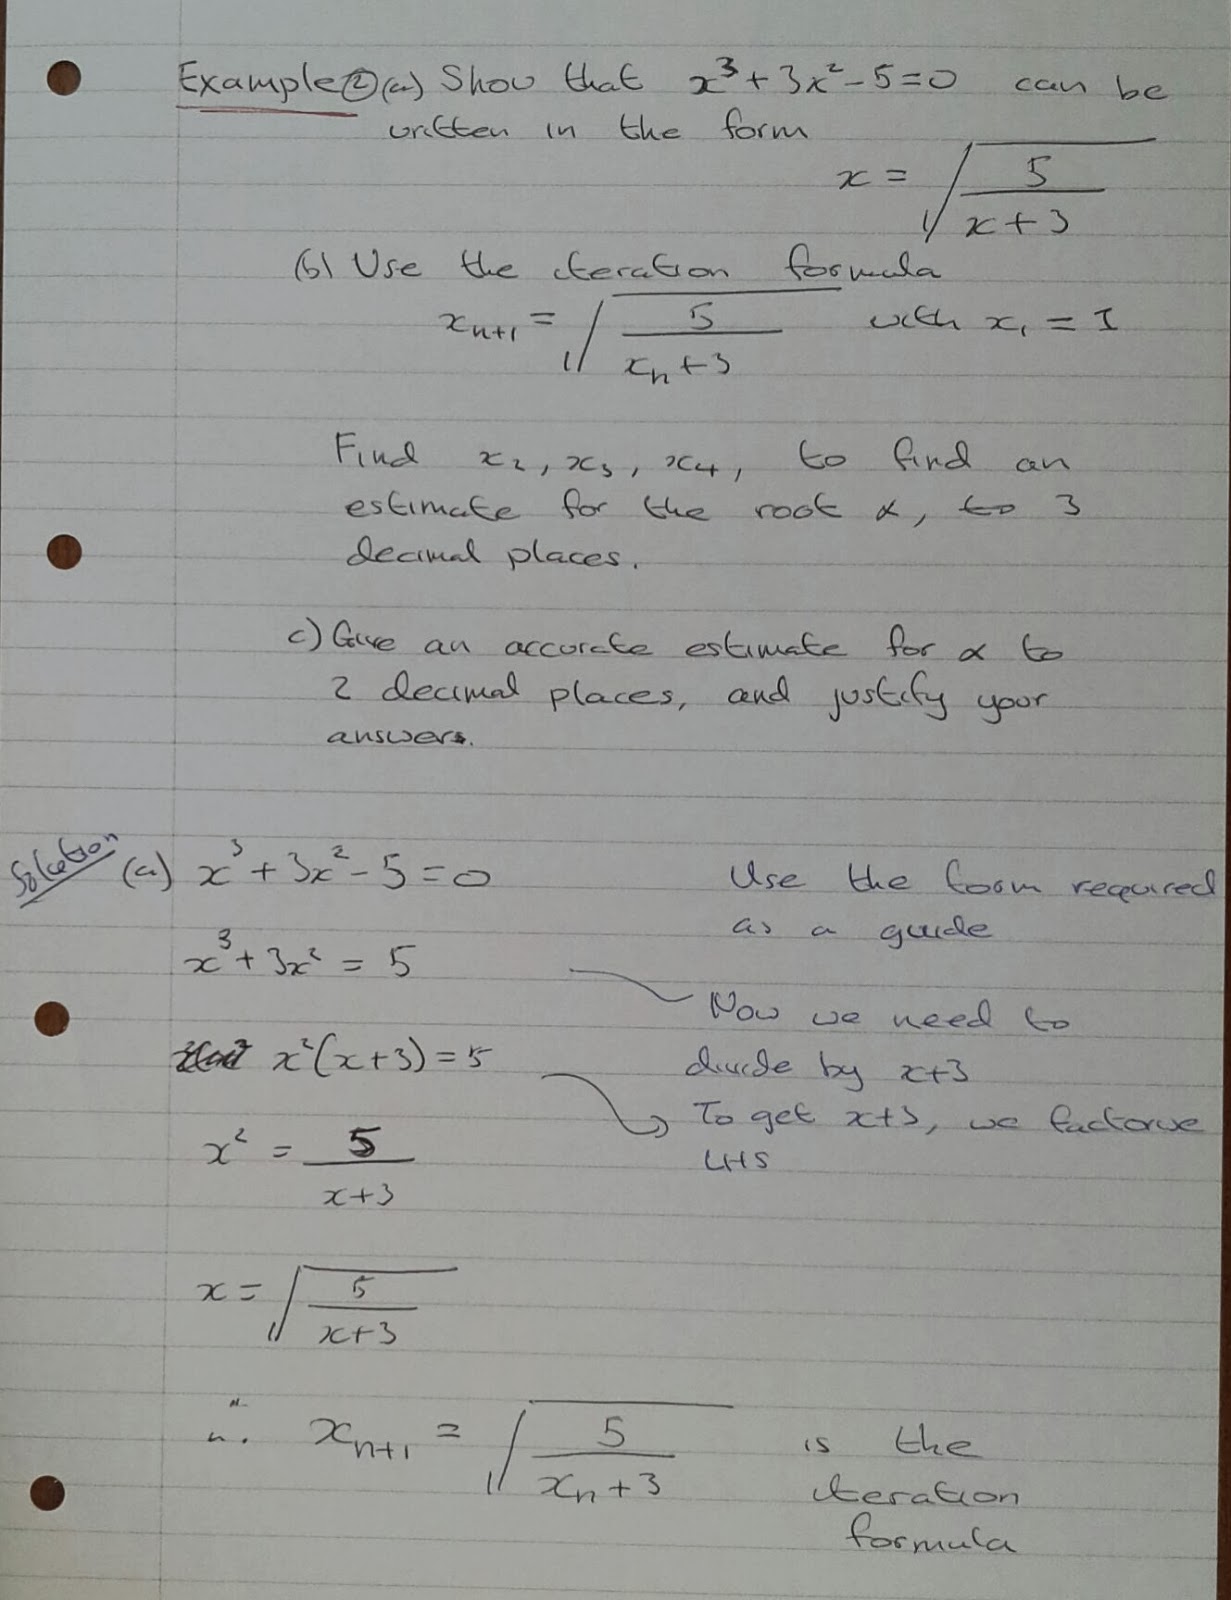 Example ② (a) Show that x³ + 3x² - 5 = 0 can be
written in the form
x = √(5/(x + 3))
(b) Use the iteration formula
xₙ₊₁ = √(5/(xₙ + 3)) with x₁ = 1
Find x₂, x₃, x₄, to find an
estimate for the root α, to 3
decimal places.
c) Give an accurate estimate for α to
2 decimal places, and justify your
answers.
Solution (a) x³ + 3x² - 5 = 0 Use the form required
as a guide
x³ + 3x² = 5
Now we need to
x²(x+3) = 5 divide by x+3
To get x+3, we factorise
x² = 5/(x+3) LHS
x = √(5/(x+3))
∴ xₙ₊₁ = √(5/(xₙ + 3)) is the
iteration
formula